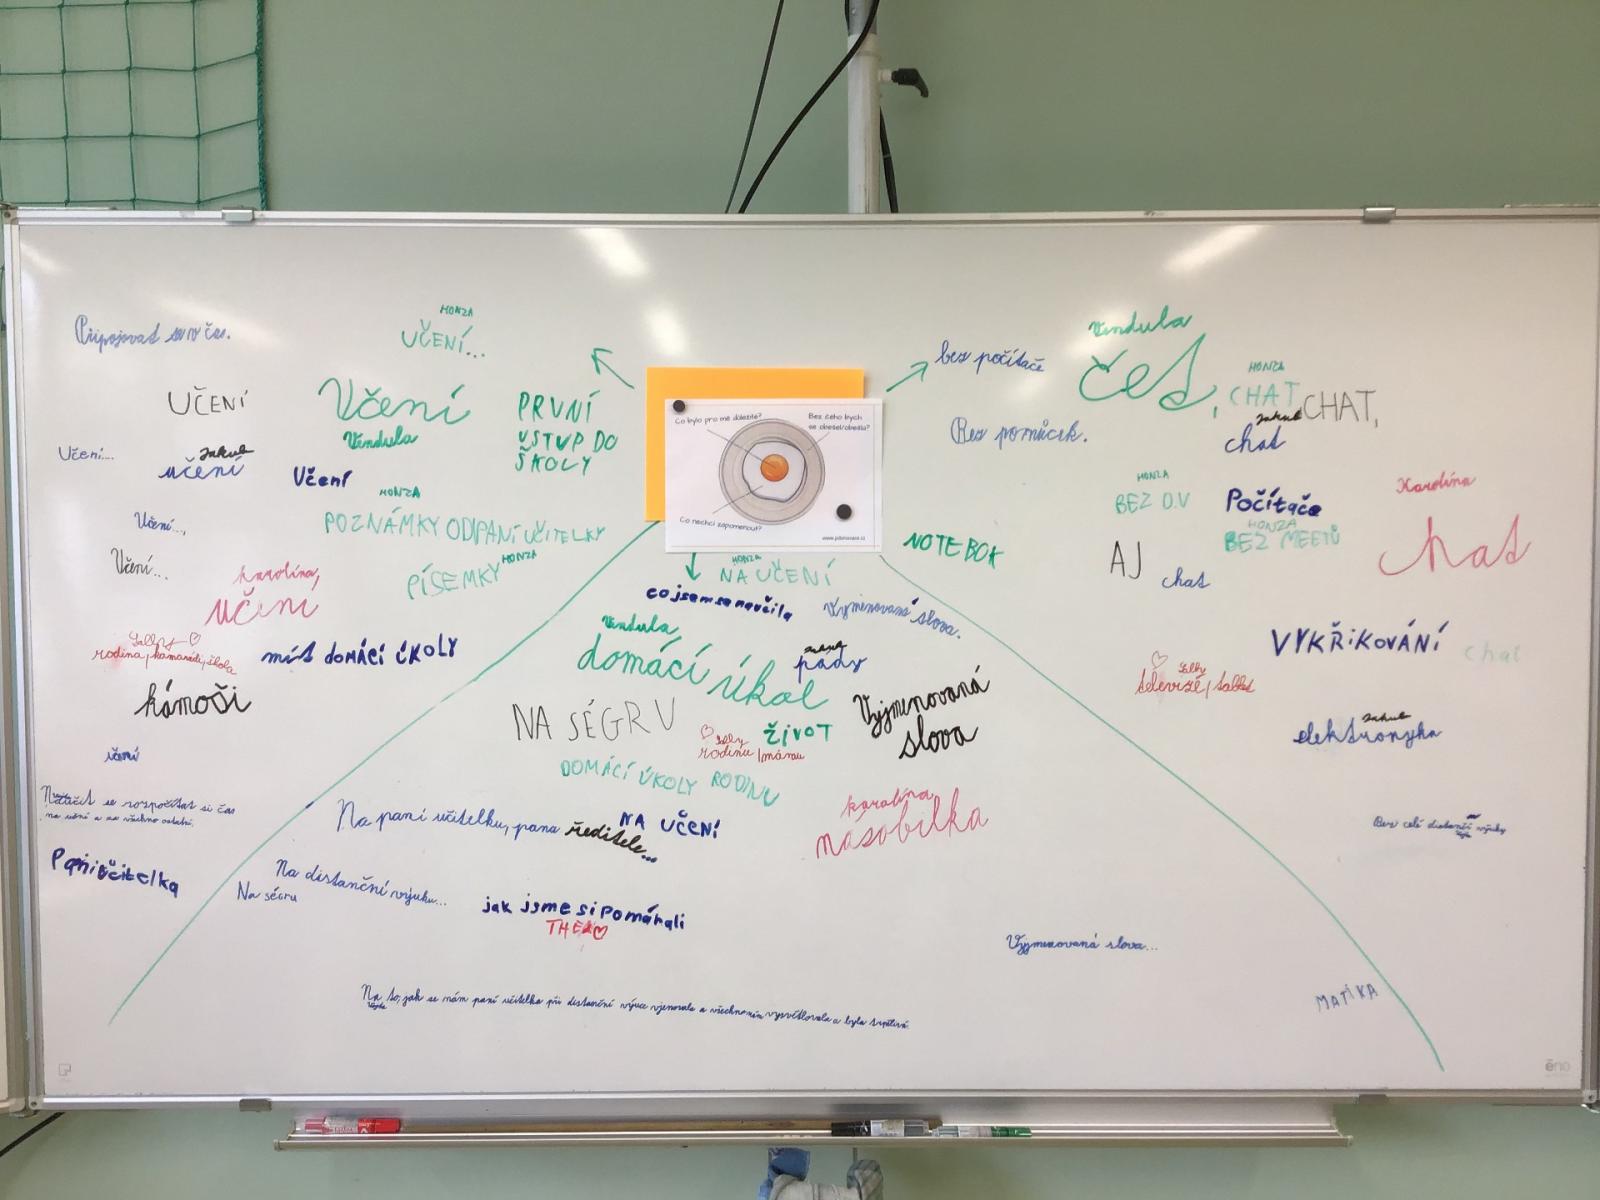 HONZA
UČENÍ...
Připojovat se v čas.
UČENÍ
Učení
Vendula
PRVNÍ
VSTUP DO
ŠKOLY
Učení...
Jakub
učení
Učení
HONZA
POZNÁMKY OD PANÍ UČITELKY
Učení...,
Učení...
HONZA
PÍSEMKY
Karolína,
učení
Sally ♡
rodina, kamarádi, škola
mít DOMÁCÍ ÚKOLY
kámoši
učení
Naučit se rozpočítat si čas
na učení a na všechno ostatní.
Paní učitelka
Co bylo pro mě důležité?
Bez čeho bych
se obešel/obešla?
Co nechci zapomenout?
www.pdsnavaze.cz
HONZA
NA UČENÍ
co jsem se naučila
Vyjmenovaná slova.
Vendula,
domácí úkol
Jakub
pády
NA SÉGRU
♡ Sally
rodinu / mámu
ŽIVOT
Vyjmenovaná
slova
DOMÁCÍ ÚKOLY RODINU
Na paní učitelku, pana ředitele...
NA UČENÍ
karolína
násobilka
Na distanční výuku...
Na ségru
jak jsme si pomáhali
Na to, jak se nám paní učitelka při distanční výuce věnovala a všechno nám vysvětlovala a byla trpělivá.
bez počítače
Vendula
čet,
HONZA
CHAT
CHAT,
Jakub
chat
Bez pomůcek.
HONZA
BEZ D.V
Počítače
HONZA
BEZ MEETŮ
Karolína
chat
NOTEBOK
AJ
chat
VYKŘIKOVÁNÍ
chat
♡ Sally
televize, tablet
Jakub
elektronyka
Bez celé distanční výuky
Vyjmenovaná slova...
MATIKA
ēno